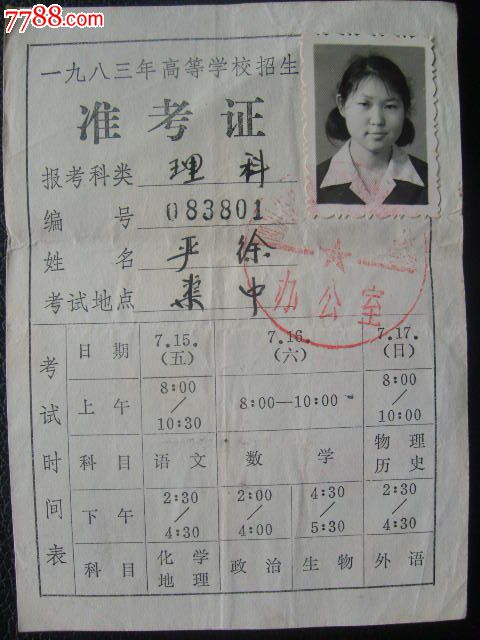 7788.com
一九八三年高等学校招生
准考证
报考科类 理科
编号 083801
姓名 严徐
考试地点 渠中
办公室
考试时间表
日期 7.15.(五) 7.16.(六) 7.17.(日)
上午 8:00/10:30 8:00—10:00 8:00/10:00
科目 语文 数学 物理 历史
下午 2:30/4:30 2:00/4:00 4:30/5:30 2:30/4:30
科目 化学 地理 政治 生物 外语